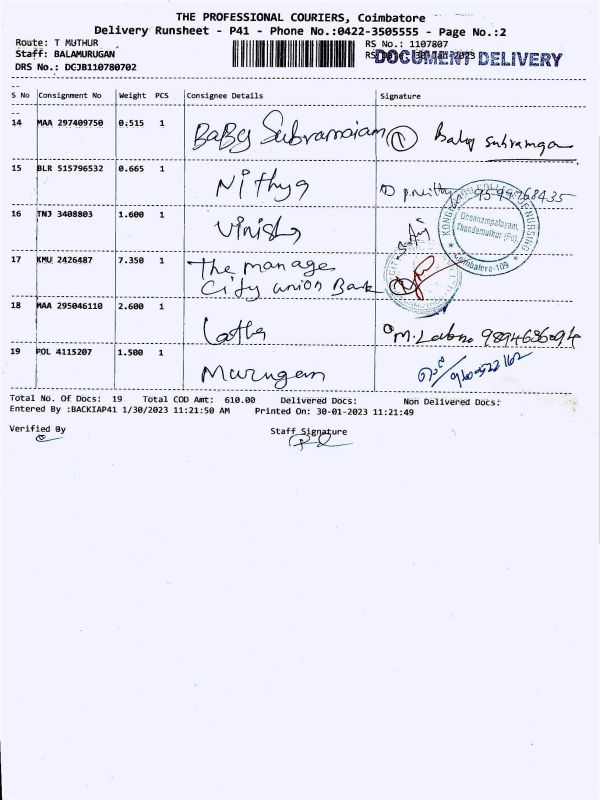 THE PROFESSIONAL COURIERS, Coimbatore
Delivery Runsheet - P41 - Phone No.:0422-3505555 - Page No.:2
Route: T MUTHUR
RS No.: 1107807
Staff: BALAMURUGAN
DOCUMENT DELIVERY
DRS No.: DCJB110780702
S No Consignment No Weight PCS Consignee Details Signature
14 MAA 297409750 0.515 1 BaBy Subramaiam 1 Baby subramga
15 BLR 515796532 0.665 1 Nithya
16 TNJ 3408803 1.600 1 Vinish
KONGUNADU COLLEGE OF NURSING
Thondamuthur (Po)
Coimbatore-109
17 KMU 2426487 7.350 1 The manage
City union Bank
18 MAA 295046110 2.600 1 Latha 9894636094
19 POL 4115207 1.500 1 Murugan
Total No. Of Docs: 19 Total COD Amt: 610.00 Delivered Docs: Non Delivered Docs:
Entered By :BACKIAP41 1/30/2023 11:21:50 AM Printed On: 30-01-2023 11:21:49
Verified By Staff Signature